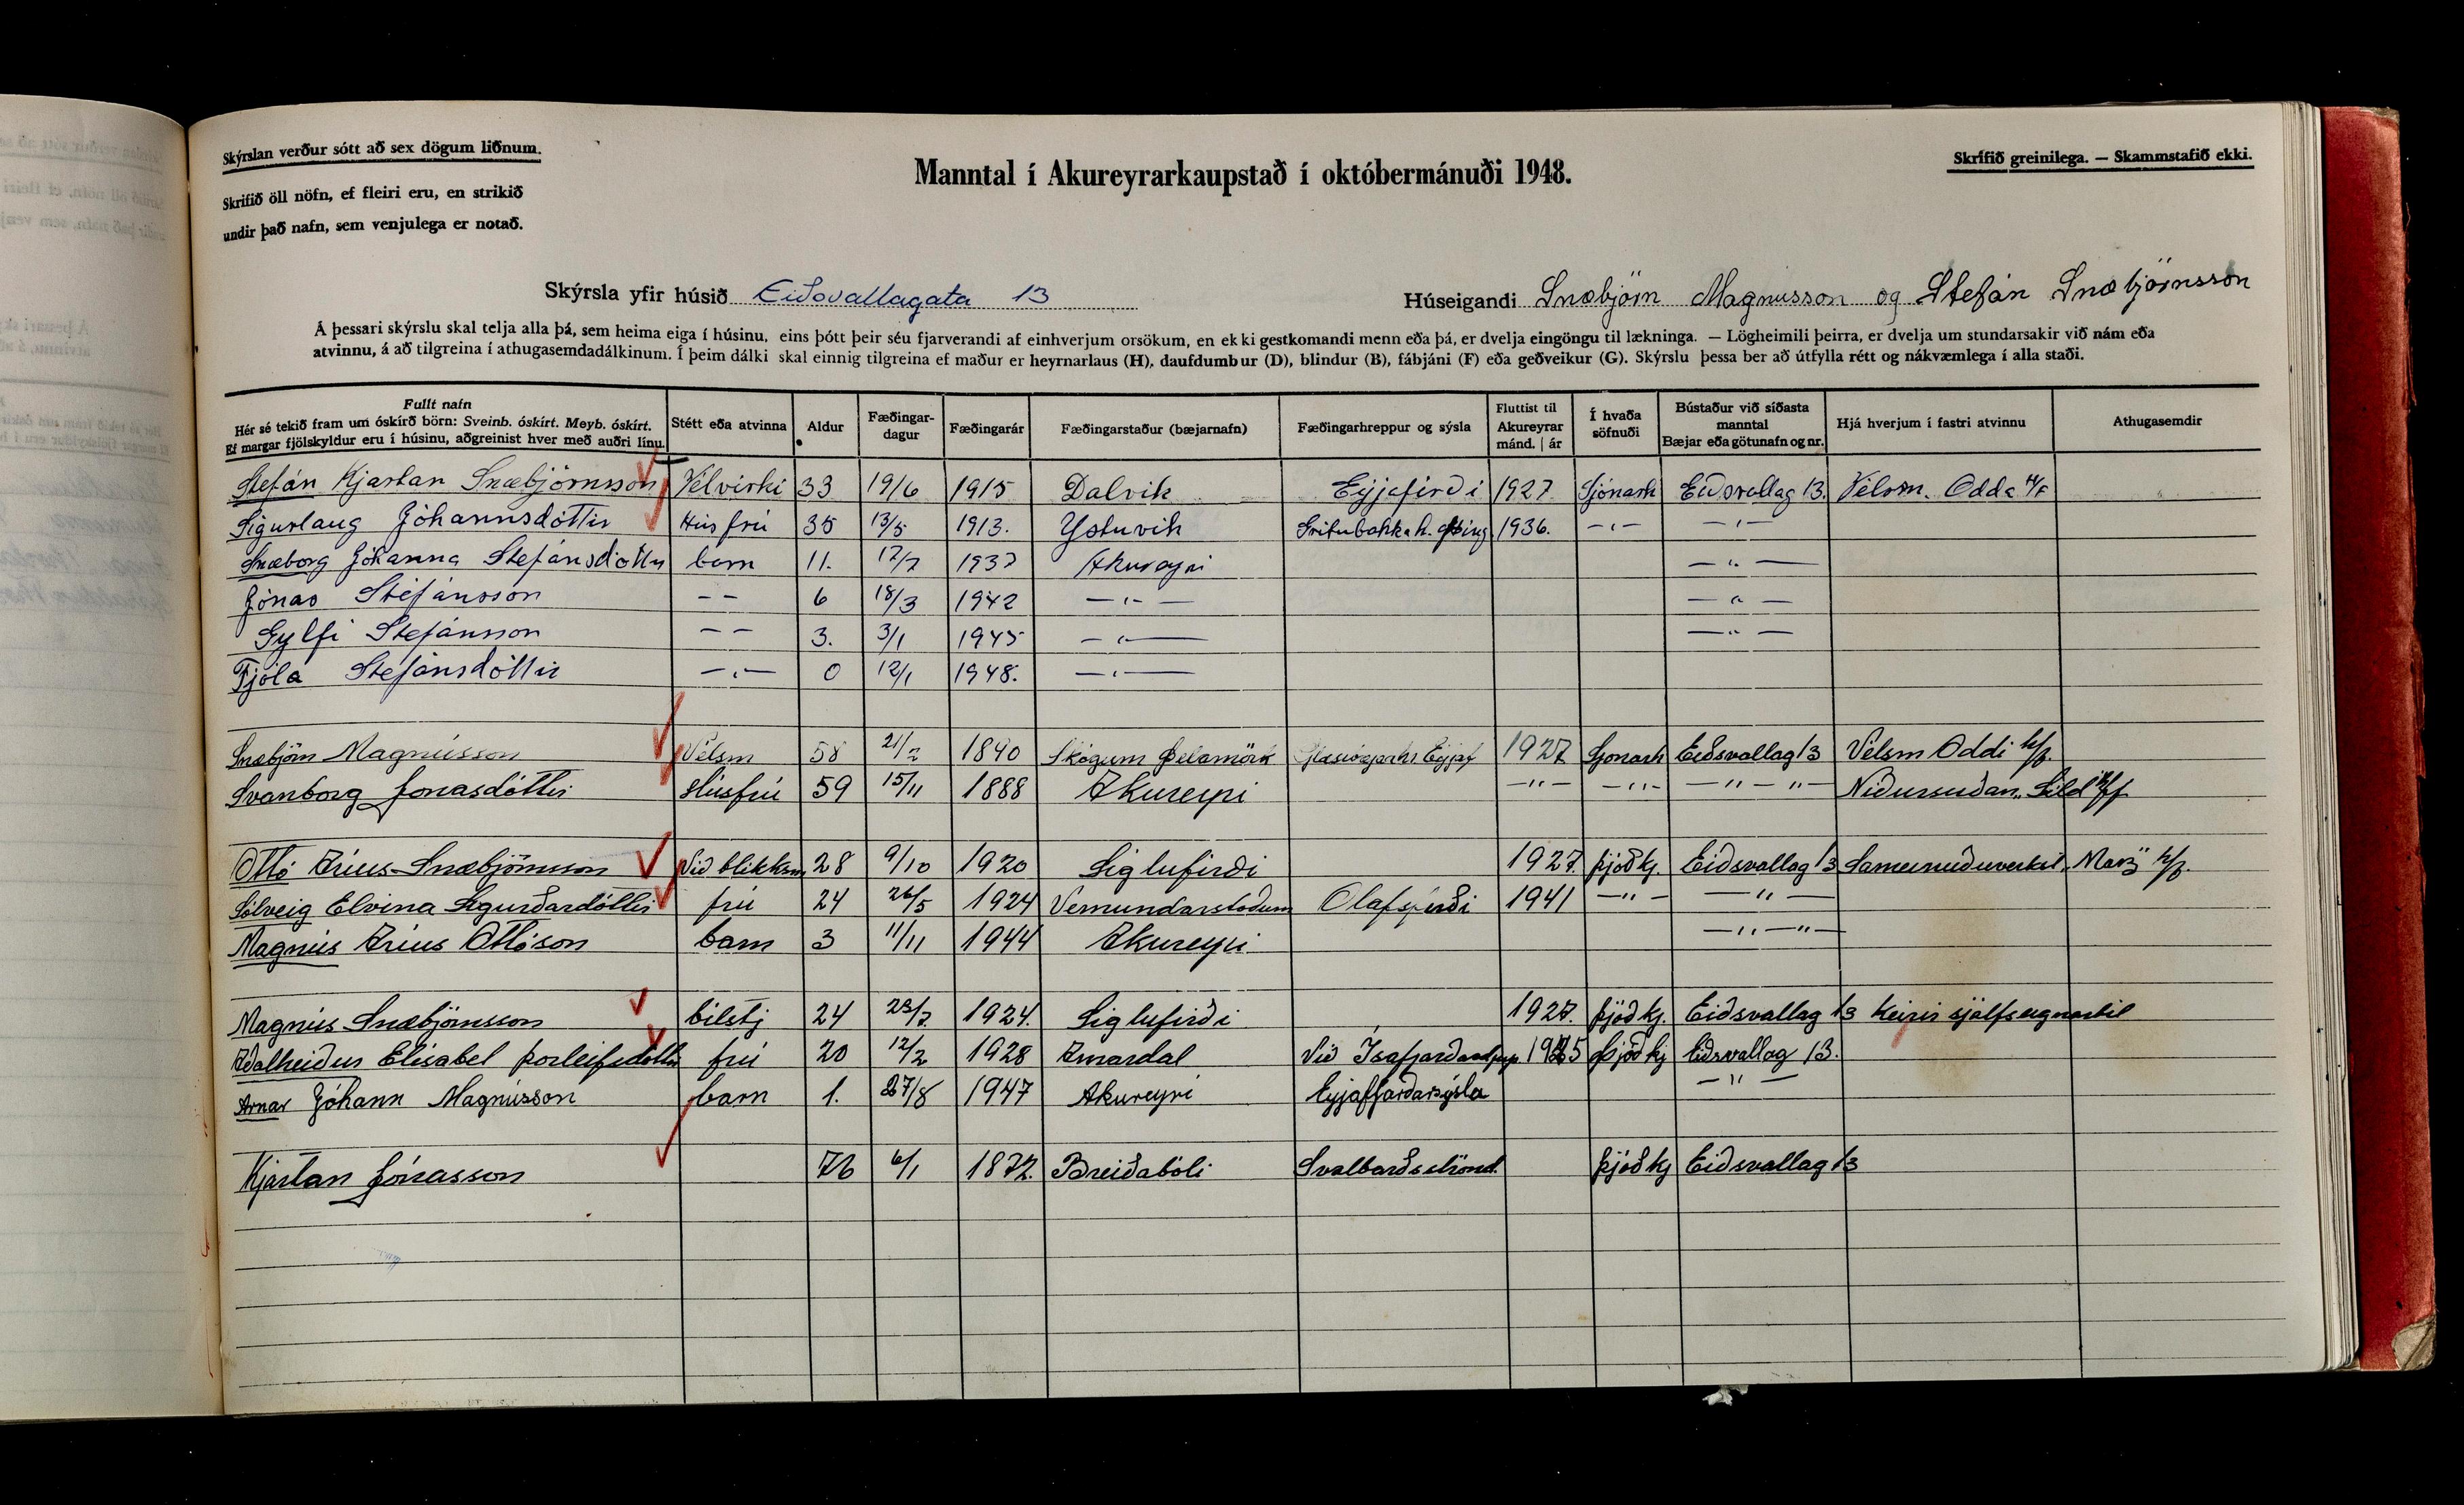 Skýrslan verður sótt að sex dögum liðnum.
Skrifið öll nöfn, ef fleiri eru, en strikið
undir það nafn, sem venjulega er notað.
Manntal í Akureyrarkaupstað í októbermánuði 1948.
Skrifið greinilega. — Skammstafið ekki.
Skýrsla yfir húsið Eiðsvallagata 13
Húseigandi Snæbjörn Magnusson og Stefán Snæbjörnsson
Á þessari skýrslu skal telja alla þá, sem heima eiga í húsinu, eins þótt þeir séu fjarverandi af einhverjum orsökum, en ekki gestkomandi menn eða þá, er dvelja eingöngu til lækninga. — Lögheimili þeirra, er dvelja um stundarsakir við nám eða
atvinnu, á að tilgreina í athugasemdadálkinum. Í þeim dálki skal einnig tilgreina ef maður er heyrnarlaus (H), daufdumbur (D), blindur (B), fábjáni (F) eða geðveikur (G). Skýrslu þessa ber að útfylla rétt og nákvæmlega í alla staði.
Fullt nafn
Hér sé tekið fram um óskírð börn: Sveinb. óskírt. Meyb. óskírt.
Ef margar fjölskyldur eru í húsinu, aðgreinist hver með auðri línu.
Stétt eða atvinna
Aldur
Fæðingar-
dagur
Fæðingarár
Fæðingarstaður (bæjarnafn)
Fæðingarhreppur og sýsla
Fluttist til
Akureyrar
mánd. | ár
Í hvaða
söfnuði
Bústaður við síðasta
manntal
Bæjar eða götunafn og nr.
Hjá hverjum í fastri atvinnu
Athugasemdir
Stefán Kjartan Snæbjörnsson Vélvirki 33 19/6 1915 Dalvik Eyjafirði 1927 Sjónarh Eiðsvallag 13. Vélsm. Odda H/F
Sigurlaug Jóhannsdóttir Húsfrú 35 13/5 1913. Ystuvik 1936. -"- -"-
Snæborg Jóhanna Stefánsdóttir barn 11. 17/7 1937 Akureyri -"-
Jónas Stefánsson - - 6 18/3 1942 -"- -"-
Gylfi Stefánsson - - 3. 3/1 1945 -"- -"-
Fjóla Stefánsdóttir -"- 0 12/1 1948. -"-
Snæbjörn Magnússon Vélsm 58 21/2 1890 Skógum Þelamörk 1927 Sjonarh Eiðsvallag 13 Velsm Oddi h/f.
Svanborg Jonasdóttir Húsfrú 59 15/11 1888 Akureyri -"- -"- -"- -"- Niðursuðan "Síld" h/f
Ottó Snæbjörnsson Við blikksm 28 9/10 1920 Siglufirði 1927. þjóðkj. Eiðsvallag 13 h/f.
Sólveig Elvina Sigurðardóttir frú 24 26/5 1924 Vemundarstoðum Olafsfirði 1941 -"- -"-
Magnús Ottóson barn 3 11/11 1944 Akureyri -"- -"-
Magnús Snæbjörnsson bílstj 24 23/7. 1924. Siglufirði 1927. þjóðkj. Eiðsvallag 13 Keirir sjálfseignarbil
Aðalheiður Elísabet Þorleifsdóttir frú 20 12/2 1928 Arnardal Við Isafjarðardjúp 1945 Þjóðkj Eiðsvallag 13.
Arnar Jóhann Magnússon barn 1. 27/8 1947 Akureyri Eyjaffarðarsýsla -"-
Kjartan Jónasson 76 6/1 1872. Breiðabóli Svalbarðsströnd. þjóðkj Eiðsvallag 13